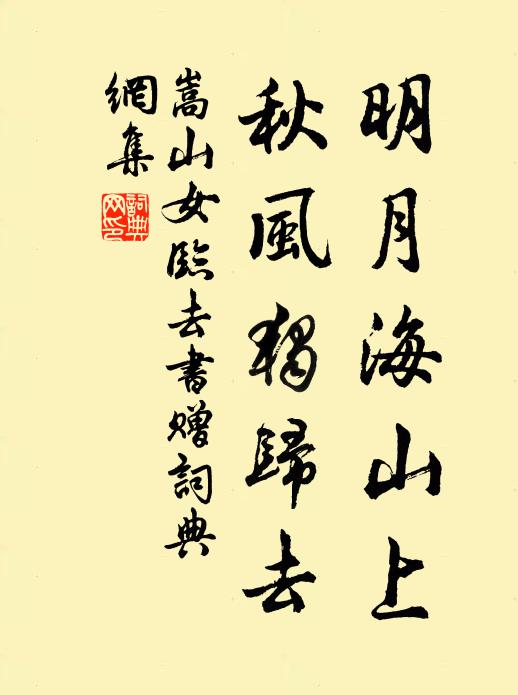 明月海山上
秋風獨歸去
嵩山女臨去書贈詞典
網集
詞典
网印